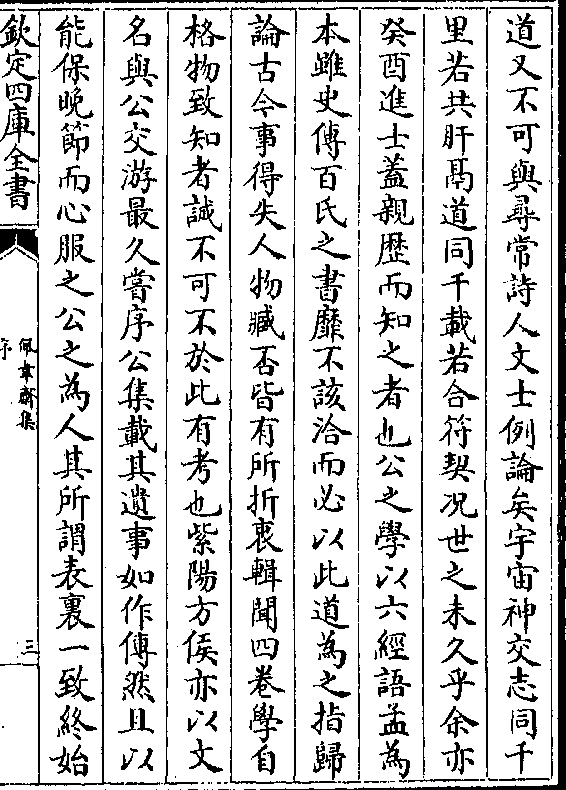 道又不可與尋常詩人文士例論矣宇宙神交志同千
里若共肝鬲道同千載若合符契况世之未久乎余亦
癸酉進士蓋親歴而知之者也公之學以六經語孟為
本雖史傳百氏之書靡不該洽而必以此道為之指歸
論古今事得失人物臧否皆有所折衷輯聞四卷學自
格物致知者誠不可不於此有考也紫陽方侯亦以文
名與公交游最久嘗序公集載其遺事如作傳然且以
能保晚節而心服之公之為人其所謂表裏一致終始
欽定四庫全書
佩韋齋集
序
三